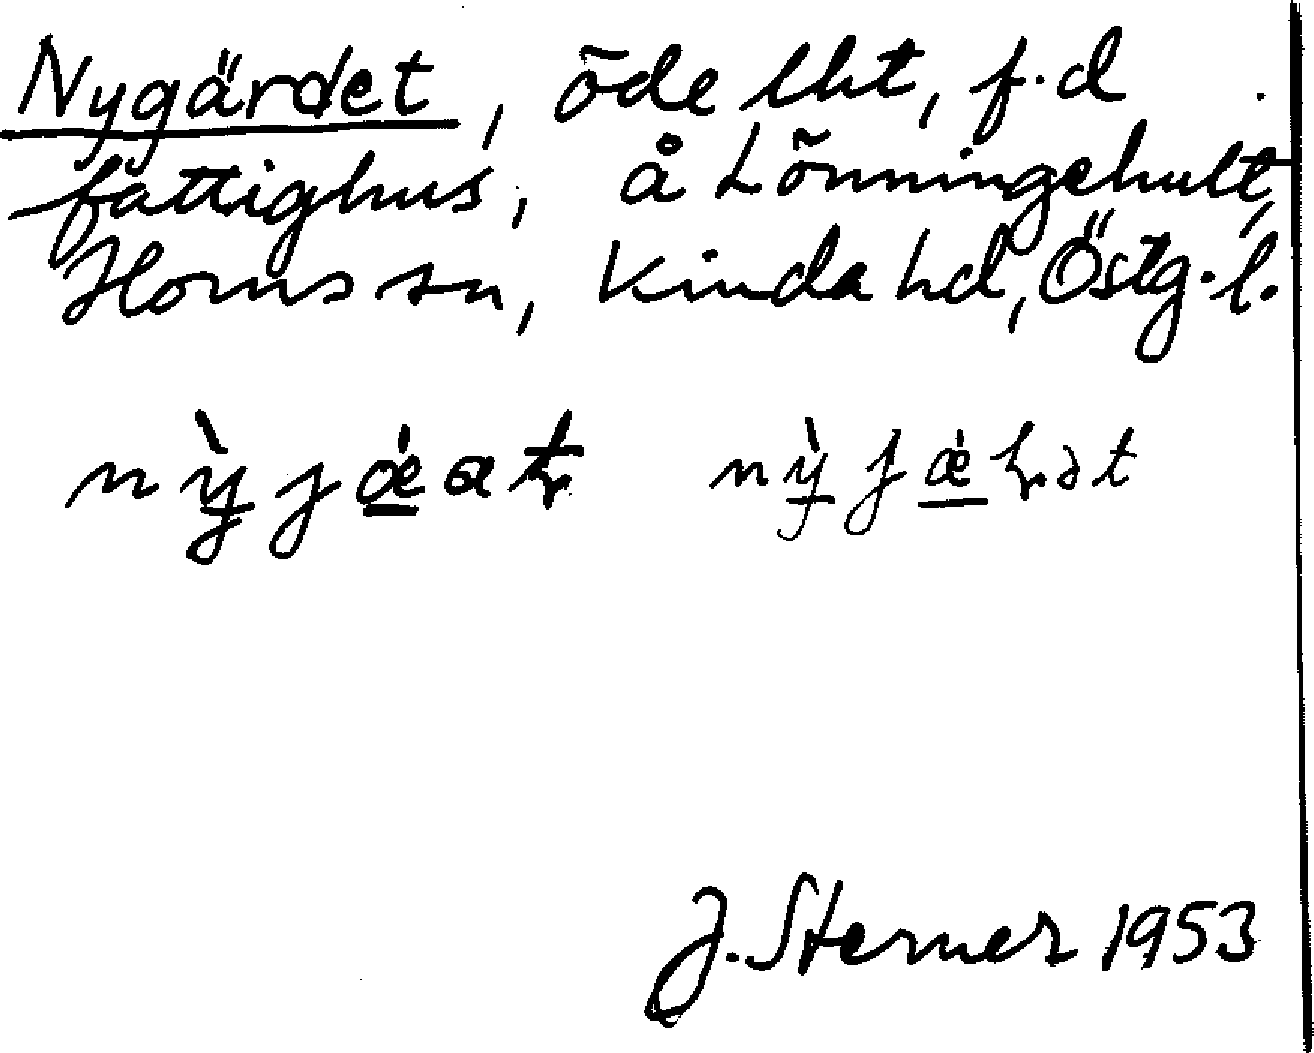 Nygärdet, öde lht, f.d
fattighus, å Lönningehult,
Horns sn, Kinda hd, Östg.l.
J. Sterner 1953